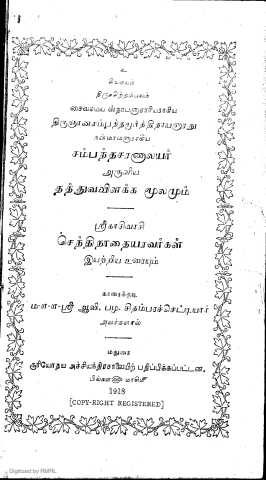 உ
சிவமயம்
திருச்சிற்றம்பலம்
சைவசமய ஸ்தாபனாசாரியராகிய
திருஞானசம்பந்தமூர்த்திநாயனாரது
சம்பந்தசரணாலயர்
அருளிய
தத்துவவிளக்க மூலமும்
ஸ்ரீகாசிவாசி
செந்திநாதையரவர்கள்
இயற்றிய உரையும்
காரைக்குடி
ம-ள-ள-ஸ்ரீ ஆவி. பழ. சிதம்பரச்செட்டியார்
அவர்களால்
மதுரை
சூரியோதய அச்சியந்திரசாலையிற் பதிப்பிக்கப்பட்டன.
பிங்களளு மாசிமீ
1918
[COPY-RIGHT REGISTERED]
Digitized by RMRL